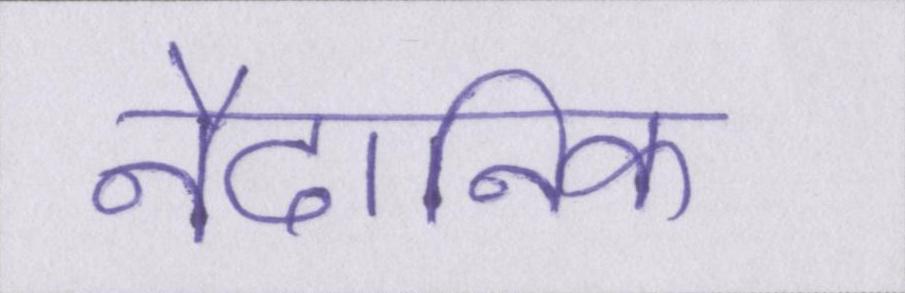 नैदानिक